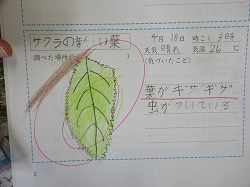 サクラの新しい葉
4月18日 時こく 3時
天気 晴れ 気温 26℃
調べた場所(
)
(気づいたこと)
葉がギザギザ
虫がついている
2